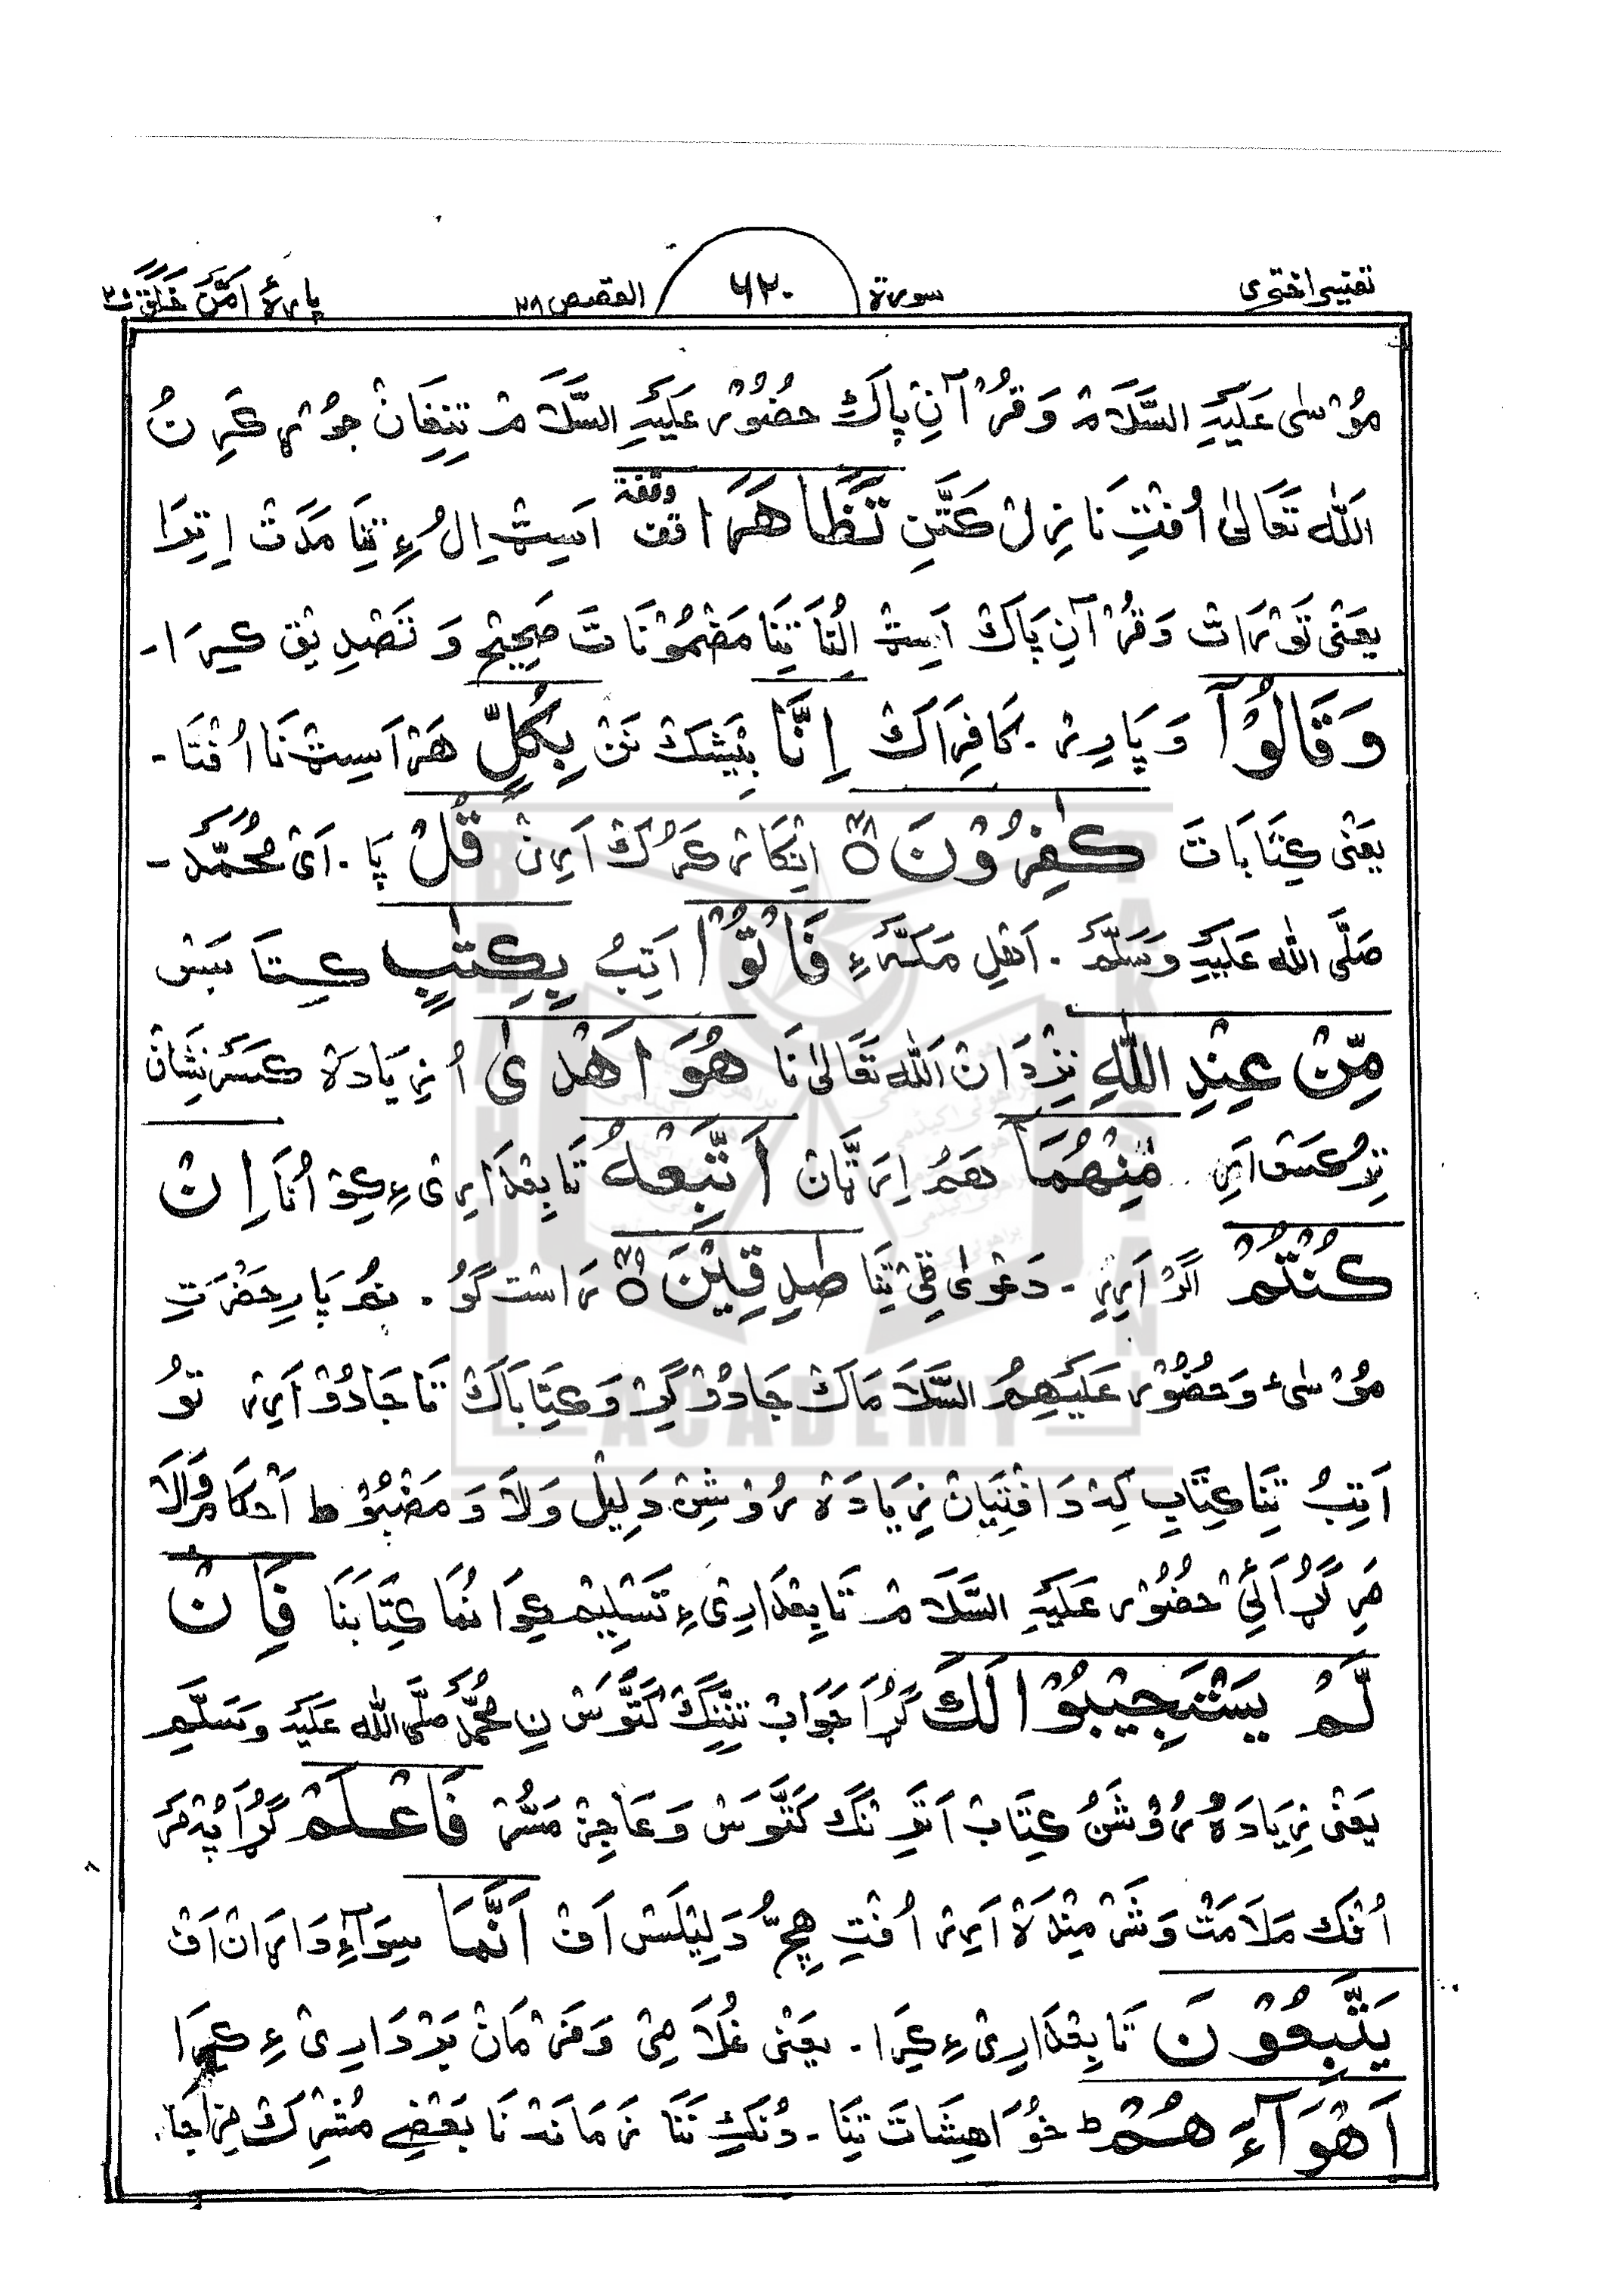 تفسیر اختری سورة ٦٢٠ القصص ٢٨ پارهٔ اَمَّنْ خَلَقَ ٢٠
مُوْسٰی عَلَیْهِ السَّلَامْ وَ قُرْآنِ پَاکْ حضُوْر عَلَیْهِ السَّلَامْ تِنِفَانْ جوْڑ کَرِنُ
اَللّٰه تَعَالیٰ اُفْتِ نَازِلْ کَتَّنِ تَظَّاهَرَا تف وقفة اَسِٹ اِلُ ءِ تِنَا مَدَتْ اِتِرَا
یَعْنٖی تَوْرَاتْ وَ قُرْآنِ پَاکْ اَسِٹ اِلُتَا تِنَا مَضْمُوْنَاتَ صَحِیْح وَ تَصْدِیق کیرَا۔
وَقَالُوْۤا وَ پَارِرْ ۔ کَافِرَاکْ اِنَّا بِیْشَکْ نَنْ بِکُلٍّ هَرْ اَسِٹ نَا اُفْتَا۔
یَعْنٖی کِتَابَاتَ کٰفِرُوْنَ ٥ ٤٨ اِنْکَار کَرُکْ اَرِنْ قُلْ پَا ۔ اَیْ مُحَمَّدْ ۔
صَلَّی اللّٰه عَلَیْهِ وَسَلَّمْ ۔ اَهْلِ مَکَّه ءِ فَاْتُوْا اَتِبُ بِکِتٰبٍ کِتَا بَسْ
مِّنْ عِنْدِ اللّٰهِ نِزْدَانْ اَللّٰه تَعَالیٰ نَا هُوَ اَهْدٰی اُ زِیَادَهْ کَسَرْ نِشَانْ
تِرُکَسْ اَرِ مِنْهُمَا هَمُ اِرَ تَّانْ اَتَّبِعْهُ تَابِعْدَارِیْ ءِ کِوْ اُنَا اِنْ
کُنْتُمْ اَگَرْ اَرِرِ ۔ دَعْوٰی ٹِیْ تِنَا صٰدِقِیْنَ ٥ ٤٩ رَاسْت گُوْ ۔ نُمْ پَارِ حَضْرَتِ
مُوْسٰی وَ حضُوْر عَلَیْهِمُ السَّلَامَاکْ جَادُوْ گَرْ وَ کِتَابَاکْ تَا جَادُوْ اَرِرْ تَوُ
اَتِبُ تِنَا کِتَابِ کِهْ دَافْتِیَانْ زِیَادَهْ رُوْشِنْ دَلِیْل وَلَا وَ مَضْبُوْط اَحْکَامْ وَالَا
مَرِ گڑَائِیْ حضُوْر عَلَیْهِ السَّلَامْ تَابِعْدَارِیْ ءِ تَسْلِیْم کِوَا نُمَا کِتَابَنَا فَاِنْ
لَّمْ یَسْتَجِیْبُوْا لَکَ گُڑَا جَوَابْ تِنِنْگْ کَتَّوَسْ نِ مُحَمَّدْ صَلَّی اللّٰه عَلَیْهِ وَسَلَّمْ
یَعْنٖی زِیَادَهْ رُوْشَنُ کِتَابْ اَتَرِنْگْ کَتَّوَسْ وَ عَاجِزْ مَسُّرْ فَاعْلَمْ گُڑَا پُهْ مَرَ
اُفْکْ مَلَامَتْ وَ شَرْمِنْدَهْ اَرِرْ اُفْتِ هِچُّ دَلِیْلَسْ اَفْ اَنَّمَا سِوَآءِ دَارَانْ اَفْ
یَتَّبِعُوْنَ تَابِعْدَارِیْ ءِ کِرَا ۔ یَعْنٖی غُلَامِیْ وَ فَرْمَانْ بَرْدَارِیْ ءِ کِرَا
اَهْوَآءَهُمْ ؕ خُوَاهِشَاتَ تِنَا ۔ دُنْکِ نَنَا زَمَانَهْ نَا بَعْضِے مُشْرِکْ مِزَاجَا.
BRAHUI ACADEMY PAKISTAN